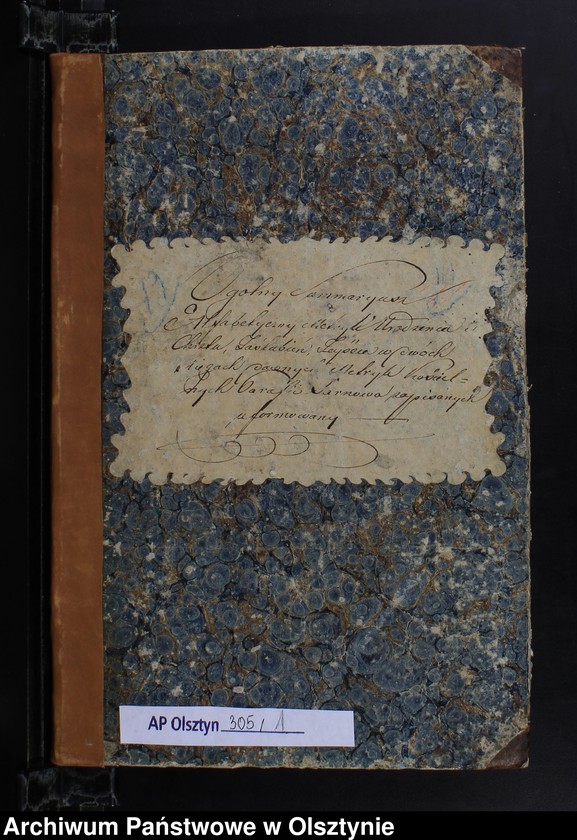 Ogolny Summaryusz
Alfabetyczny Metryk Urodzenia i
Chrztu, Zaślubień Zeyścia w dwóch
Xięgach dawnych Metryk Kościel=
nych Parafii Sarnowa zapisanych
uformowany
AP Olsztyn 305/1
Archiwum Państwowe w Olsztynie